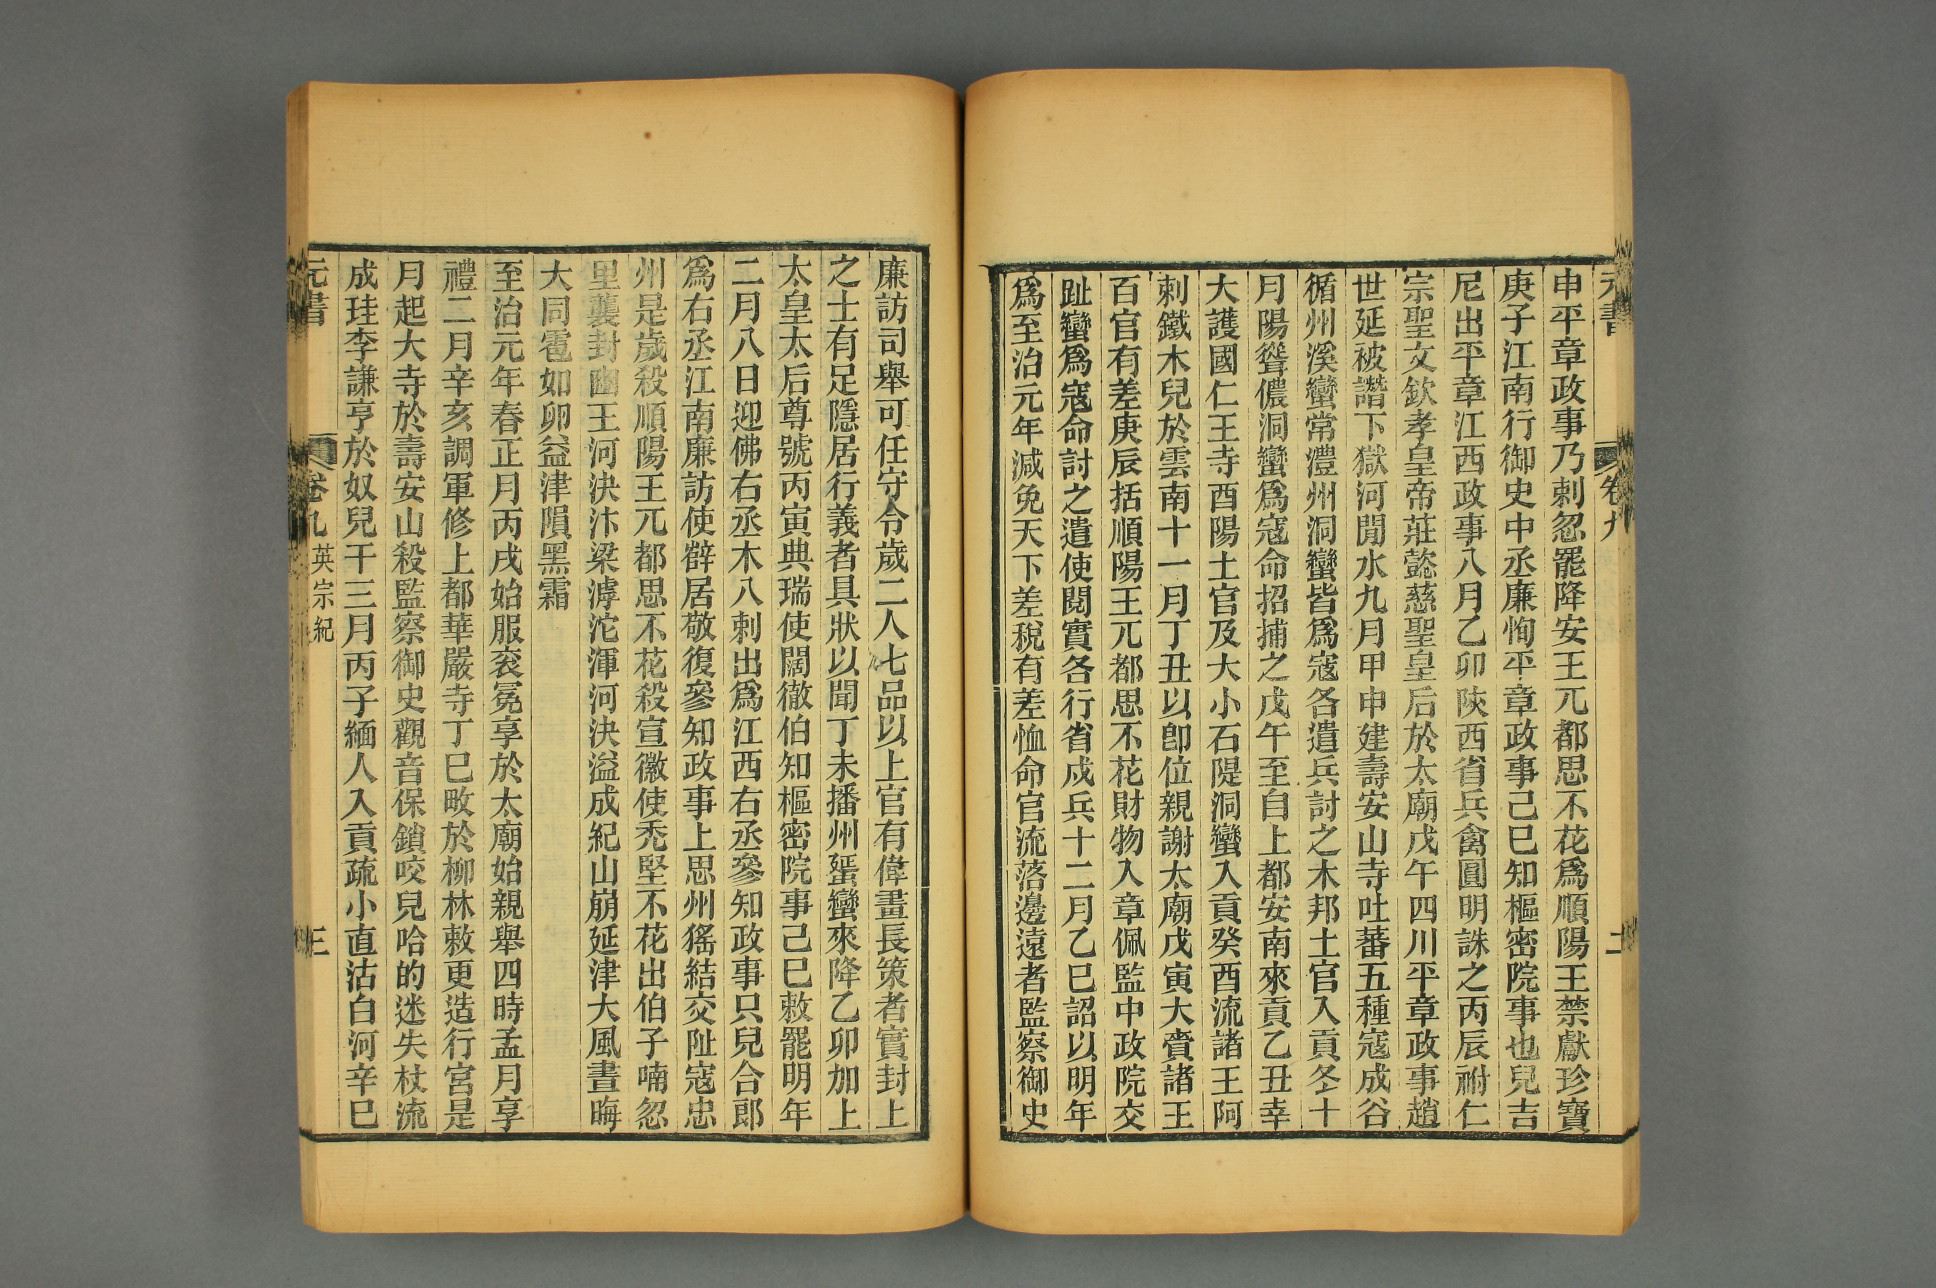 元書
卷九
二
申平章政事乃剌忽罷降安王兀都思不花爲順陽王禁獻珍寶
庚子江南行御史中丞廉恂平章政事己巳知樞密院事也兒吉
尼出平章江西政事八月乙卯陝西省兵禽圓明誅之丙辰祔仁
宗聖文欽孝皇帝莊懿慈聖皇后於太廟戊午四川平章政事趙
世延被譖下獄河閒水九月甲申建壽安山寺吐蕃五種寇成谷
循州溪蠻常澧州洞蠻皆爲寇各遣兵討之木邦土官入貢冬十
月陽聳儂洞蠻爲寇命招捕之戊午至自上都安南來貢乙丑幸
大護國仁王寺酉陽土官及大小石隄洞蠻入貢癸酉流諸王阿
剌鐵木兒於雲南十一月丁丑以卽位親謝太廟戊寅大賚諸王
百官有差庚辰括順陽王兀都思不花財物入章佩監中政院交
趾蠻爲寇命討之遣使閱實各行省戍兵十二月乙巳詔以明年
爲至治元年減免天下差稅有差恤命官流落邊遠者監察御史
廉訪司舉可任守令歲二人七品以上官有偉畫長策者實封上
之士有足隱居行義者具狀以聞丁未播州蜑蠻來降乙卯加上
太皇太后尊號丙寅典瑞使闊徹伯知樞密院事己巳敕罷明年
二月八日迎佛右丞木八剌出爲江西右丞參知政事只兒合郎
爲右丞江南廉訪使辥居敬復參知政事上思州猺結交阯寇忠
州是歲殺順陽王兀都思不花殺宣徽使禿堅不花出伯子喃忽
里襲封豳王河決汴梁滹沱渾河決溢成紀山崩延津大風晝晦
大同雹如卵益津隕黑霜
至治元年春正月丙戌始服衮冕享於太廟始親舉四時孟月享
禮二月辛亥調軍修上都華嚴寺丁巳畋於柳林敕更造行宮是
月起大寺於壽安山殺監察御史觀音保鎖咬兒哈的迷失杖流
成珪李謙亨於奴兒干三月丙子緬人入貢疏小直沽白河辛巳
元書
卷九
英宗紀
三